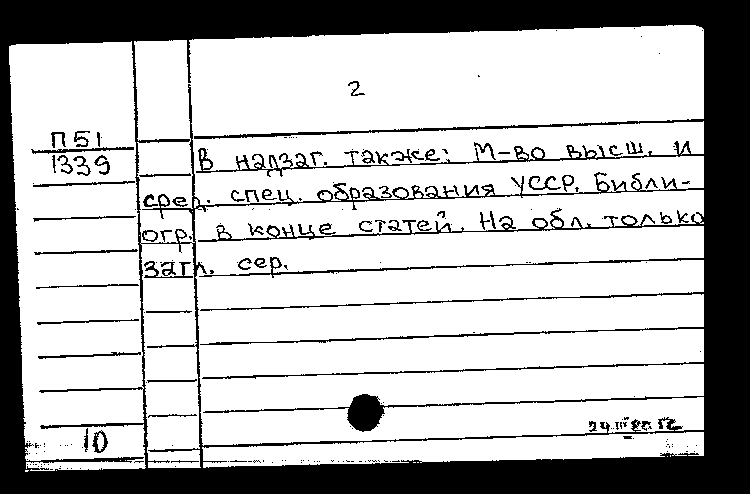 2
П51
1339
В надзаг. также: М-во высш. и
сред. спец. образования УССР. Библи-
огр. в конце статей. На обл. только
загл. сер.
10